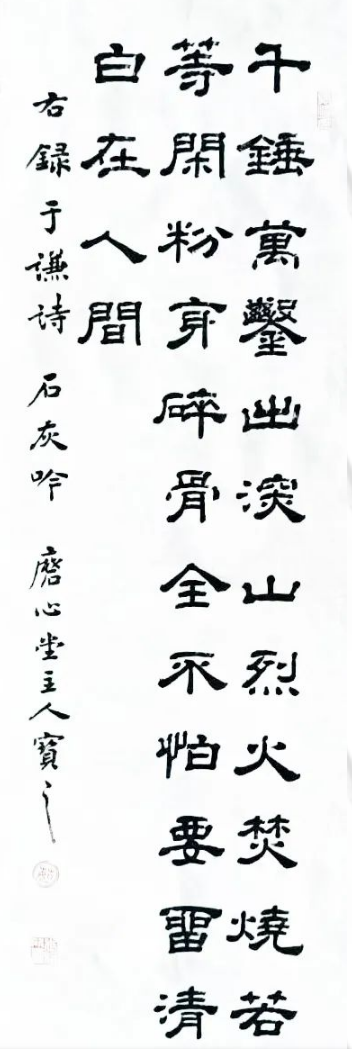 千錘萬鑿出深山烈火焚燒若
等閑粉身碎骨全不怕要留清
白在人間
右録于謙詩 石灰吟 磨心堂主人寶之